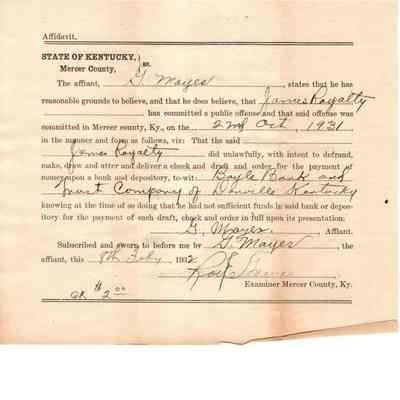 Affidavit.
STATE OF KENTUCKY, } ss.
Mercer County,
The affiant, G Mayes, states that he has
reasonable grounds to believe, and that he does believe, that James Royalty
has committed a public offense and that said offense was
committed in Mercer county, Ky., on the 2nd Oct, 1931
in the manner and form as follows, viz: That the said
James Royalty did unlawfully, with intent to defraud,
make, draw and utter and deliver a check and draft and order for the payment of
money upon a bank and depository, to-wit: Boyle Bank and
Trust Company of Danville Kentucky
knowing at the time of so doing that he had not sufficient funds in said bank or depos-
itory for the payment of such draft, check and order in full upon its presentation.
G. Mayes, Affiant.
Subscribed and sworn to before me by G. Mayes, the
affiant, this 8th Feby, 1932
Examiner Mercer County, Ky.
$2.00